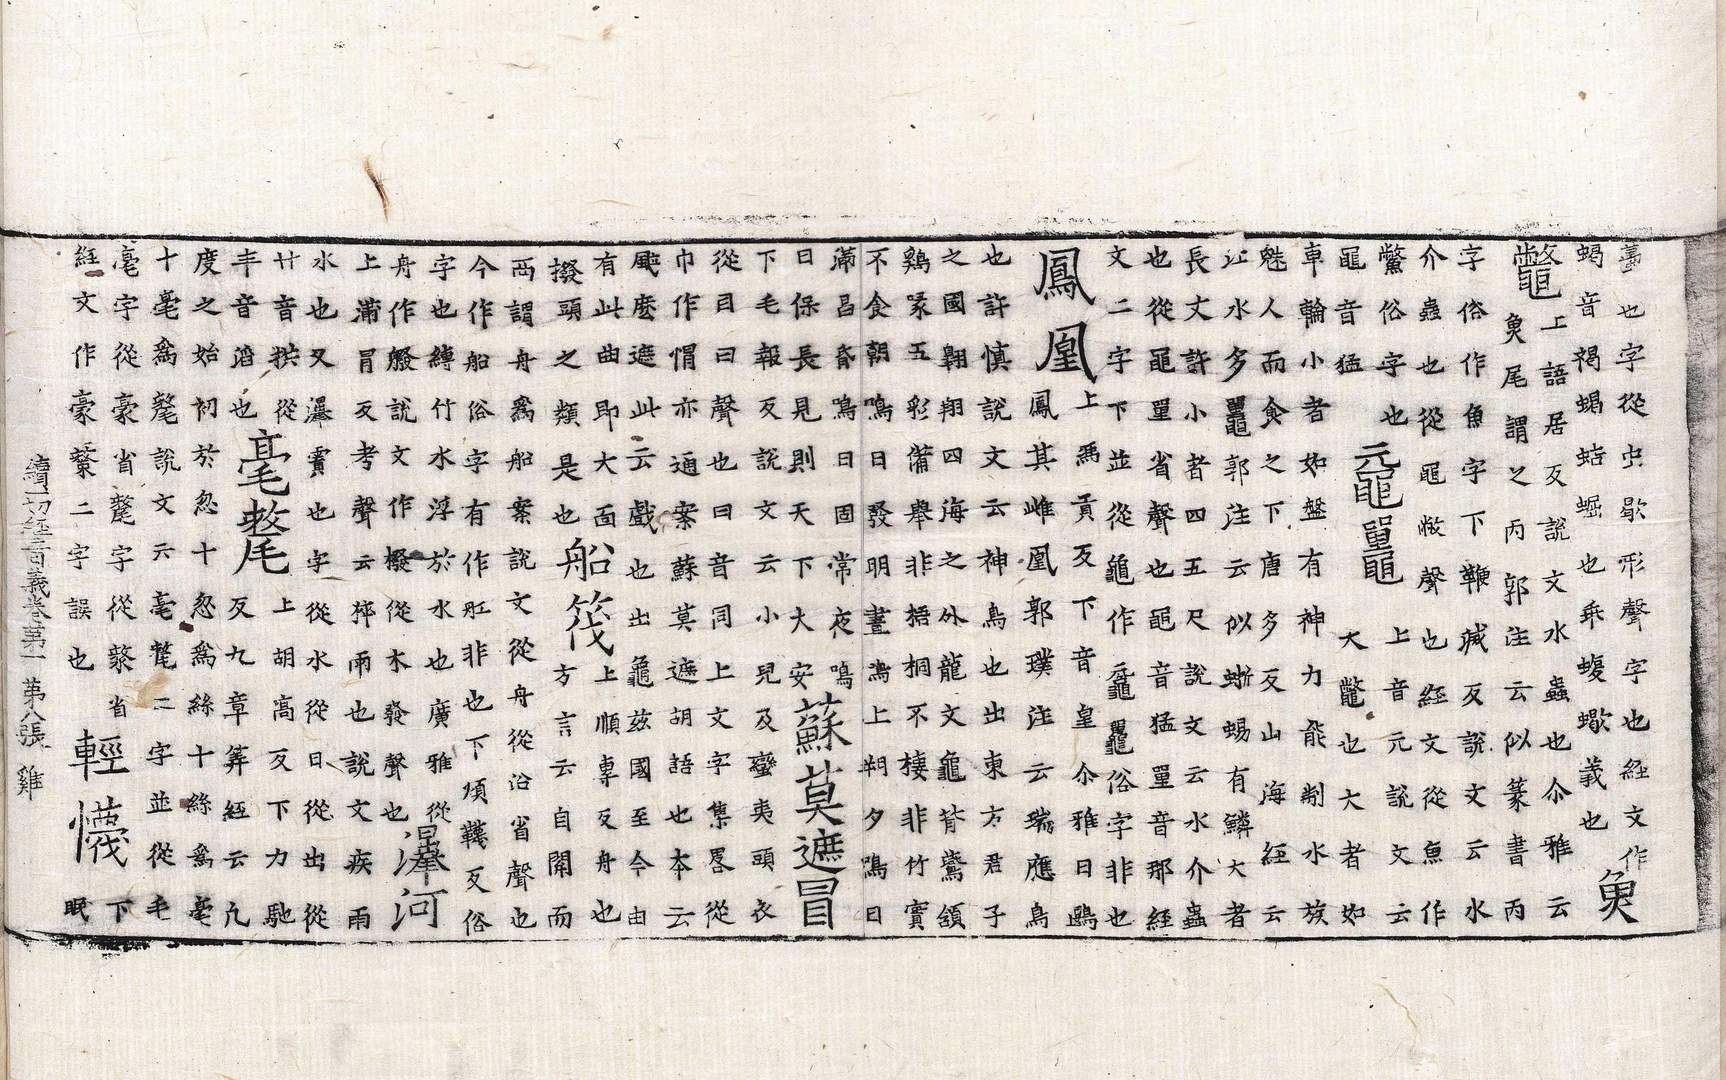 蠆也字從虫歇形聲字也経文作
蝎音褐蝎蛣蝠也乖蝮蠍義也
魚
鼈上語居反説文水蟲也介雅云
魚尾謂之丙郭注云似篆書丙
字俗作魚字下鞭滅反説文云水
介蟲也從黽敝聲也経文從魚作
鱉俗字也 黿鼉 上音元説文云
大鼈也大者如
黽音猛
車輪小者如盤有神力能制水族
魅人而食之下唐多反山海経云
江水多鼉郭注云似蜥蜴有鱗大者
長丈許小者四五尺説文云水介蟲
也從黽單省聲也黽音猛單音那経
文二字下並從龜作黿鼉俗字非也
鳳凰 上馮貢反下音皇介雅曰鶠
鳳其雌凰郭璞注云瑞應鳥
也許慎説文云神鳥也出東方君子
之國翱翔四海之外龍文龜背鷰頷
鷄喙五彩備舉非梧桐不棲非竹實
不食朝鳴曰發明晝鳴上朔夕鳴曰
滿昌昏鳴曰固常夜鳴
曰保長見則天下大安 蘇莫遮冒
下毛報反説文云小兒及蠻夷頭衣
從目曰聲也曰音同上文字集畧從
巾作㡌亦通案蘇莫遮胡語也本云
颯麼遮此云戲也出龜茲國至今由
有此曲即大面
撥頭之類是也 船筏 上順專反舟也
方言云自關而
西謂舟爲船案説文從舟從㕣省聲也
今作舩俗字有作舡非也下煩韈反俗
字也縛竹水浮於水也廣雅從
舟作橃説文作橃從木發聲也 瀑河
上蒲冒反考聲云猝雨也説文疾雨
水也又瀑霣也字從水從日從出從
廾音拱從
㚔音滔也 毫氂 上胡高反下力馳
反九章筭経云凢
度之始初於忽十忽爲絲十絲爲毫
十毫爲氂説文云毫氂二字並從毛
毫字從豪省氂字從𠩺省
経文作豪𣯛二字誤也 輕懱 下
眠
續一切経音義卷第一 第八張 雞